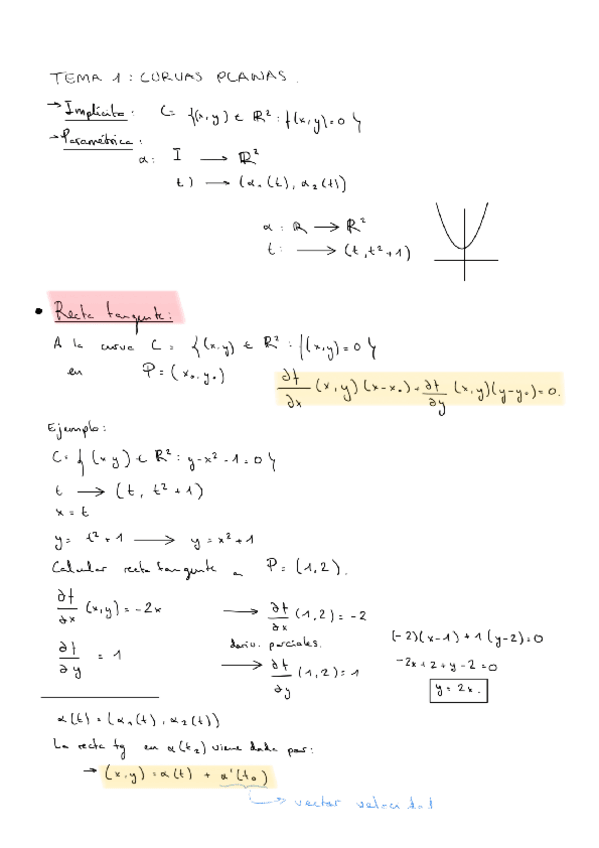 TEMA 1: CURVAS PLANAS.
→ Implícita: C = {(x,y) ∈ ℝ² : f(x,y)=0}
→ Paramétrica:
α: I → ℝ²
t) → (α₁(t), α₂(t))
α: ℝ → ℝ²
t: → (t, t²+1)
• Recta tangente:
A la curva C = {(x,y) ∈ ℝ² : f(x,y)=0}
en P=(x₀,y₀) ∂f/∂x (x,y)(x-x₀) + ∂f/∂y (x,y)(y-y₀)=0.
Ejemplo:
C={(x y) ∈ ℝ² : y-x²-1=0}
t → (t, t²+1)
x=t
y= t²+1 → y=x²+1
Calcular recta tangente en P=(1,2).
∂f/∂x (x,y)=-2x → ∂f/∂x (1,2)=-2
deriv. parciales.
∂f/∂y = 1 → ∂f/∂y (1,2)=1
(-2)(x-1)+1(y-2)=0
-2x+2+y-2=0
y=2x.
α(t)=(α₁(t), α₂(t))
La recta tg en α(t₂) viene dada por:
→ (x,y)=α(t) + α'(t₀)
→ vector velocidad